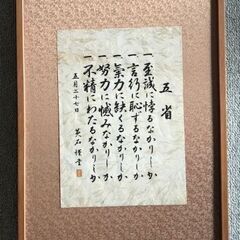 五省
一至誠に悖るなかりしか
一言行に恥ずるなかりしか
一氣力に缺くるなかりしか
一努力に憾みなかりしか
一不精にわたるなかりしか
五月二十七日
英石